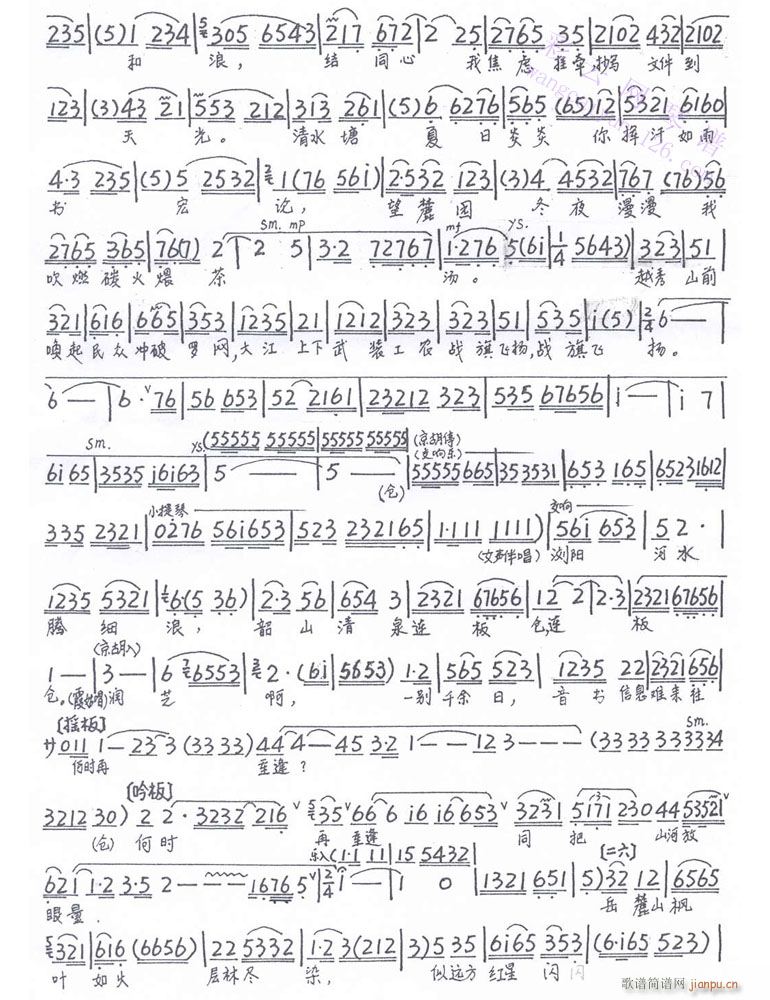 235|(5)1 234|305 6543|217 672|2 25|2765 35|2102 432|2102
和 浪， 结 同心 我焦虑 挂牵抄写 文件到
123|(3)43 21|553 212|313 261|(5)6 6276|565 (65)12|5321 6160
天 光。 清水塘 夏 日 炎炎 你 挥汗如雨
4·3 235|(5)5 2532|1(76 561)|2·532 123|(3)4 4532|767 (76)56
书 宏 论， 望麓园 冬 夜漫漫 我
sm. mp mf ys.
2765 365|76(7) 2|2 5|3·2 72767|1·276 5(61|1/4 5643)|323|51
吹燃碳火煨 茶 汤。 越秀山前
321|616|665|353|1235|21|1212|323|323|51|535|1(5)|2/4 6—|
唤起民众冲破罗网,大江上下武装工农战旗飞扬,战旗飞 扬。
6—|6·76|56 653|52 2161|23212 323|535 67656|1—|1 7
sm. ys. (55555 55555|55555 55555 (京胡停) (交响乐)
6165|3535 16163|5—|5—|55555 665|353531|653 165|65231612
(仓)
小提琴 交响
335 2321|0276 561653|523 232165|1·111 1111)|561 653|52·|
(女声伴唱)浏阳 河水
1235 5321|6·(5 36)|2·3 56|654 3|2321 67656|12 2|2·3|2321 67656
腾 细 浪， 韶山清 泉连 板 仓,连 板
(京胡入)
1—|3—|6 76553|2·(61|5653)|1·2|565 523|1235 22|2321 656|
仓。(霞姑唱)润 芝 啊， 一别千余 日，音书信息难来往
[摇板] sm.
サ011 1—233(3333)44 4—453·2 1——123———(33333333334
何时再 重逢？
[吟板]
3212 30) 2 2·3232 216 35 666 16 16653|32331|5171 230 44 53521
(仓) 何时 再 重逢 同 把 山河放
乐入(1·1 11|15 5432| [二六]
621 1·23·52———16765|2/4 1—|1 0|1321 651|5)32 12|6565
眼量. 岳麓山枫
321|616 (6656)|22 5332|1·2 3(212|3)5 35|6165 353|(6·165 523)|
叶 如火 层林尽 染， 似远方 红星 闪闪
歌谱简谱网 jianpu.cn